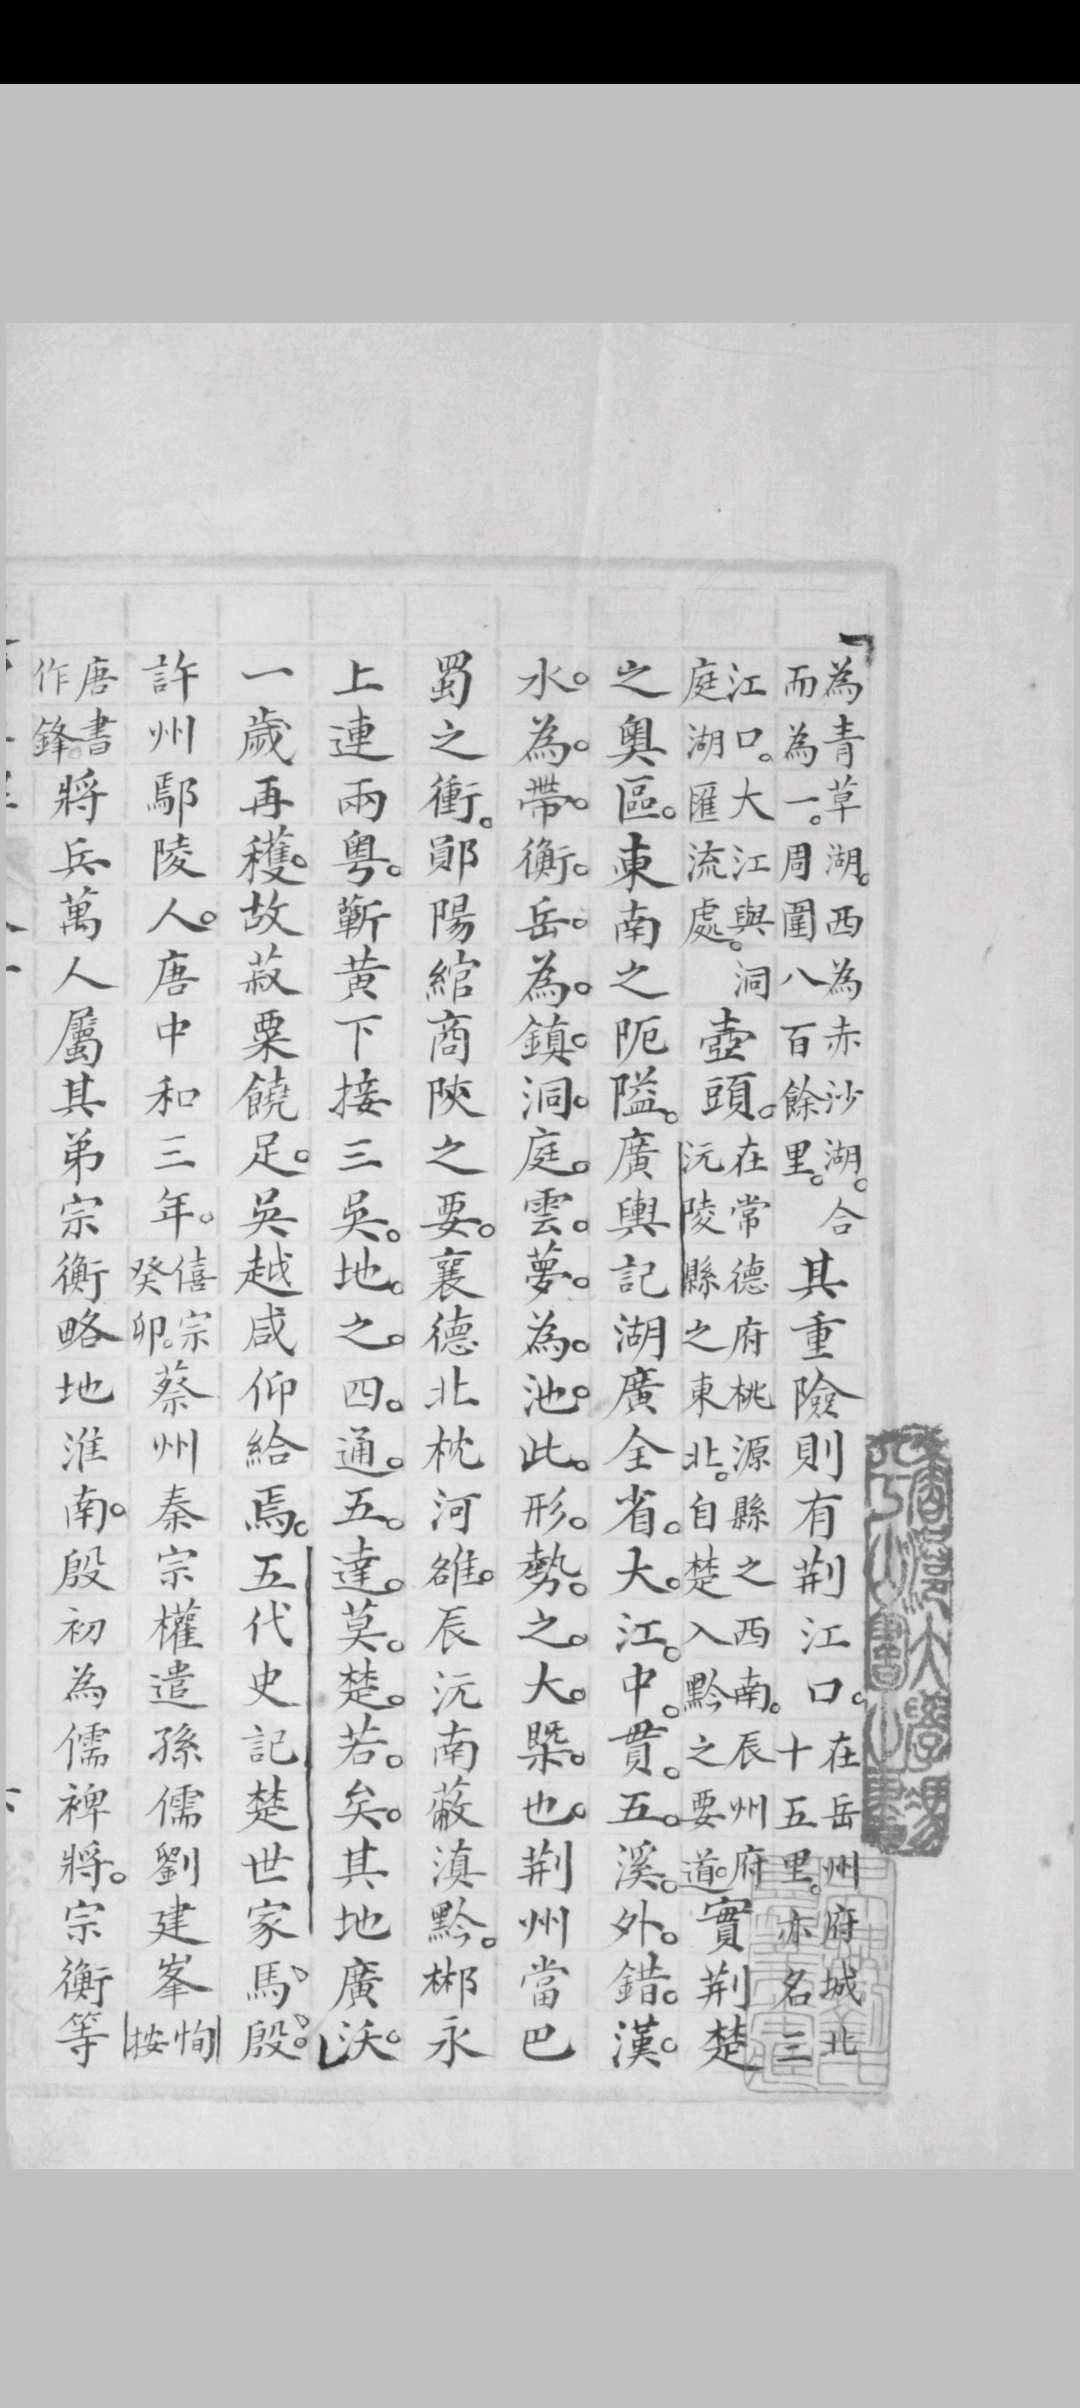 為青草湖。西為赤沙湖。合
而為一。周圍八百餘里。
其重險則有荆江口。
在岳州府城北
十五里。亦名三
江口。大江與洞
庭湖匯流處。
壺頭。
在常德府桃源縣之西南。辰州府
沅陵縣之東北。自楚入黔之要道。
實荆楚
之奥區。東南之阨隘。廣輿記湖廣全省。大江中貫。五溪外錯。漢
水為帶。衡岳為鎮。洞庭雲夢為池。此形勢之大槩也。荆州當巴
蜀之衝。鄖陽綰商陝之要。襄德北枕河雒。辰沅南蔽滇黔。郴永
上連兩粤。蘄黄下接三吳。地之四通五達。莫楚若矣。其地廣沃。
一歲再穫。故菽粟饒足。吳越咸仰給焉。五代史記楚世家馬殷。
許州鄢陵人。唐中和三年。
僖宗
癸卯。
蔡州秦宗權遣孫儒劉建峯
恂
按
唐書
作鋒。
將兵萬人屬其弟宗衡略地淮南。殷初為儒裨將。宗衡等